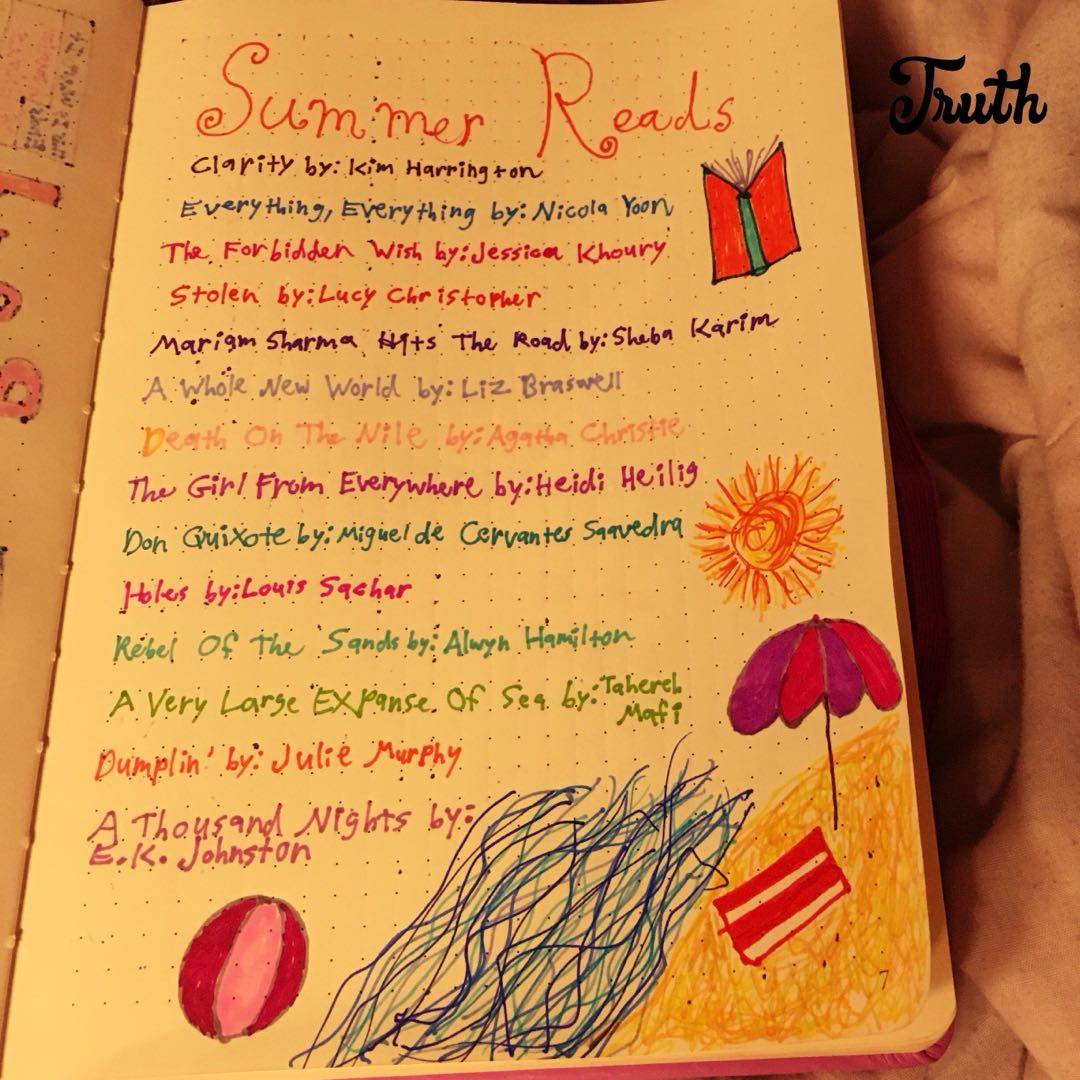 Summer Reads
Truth
Clarity by: Kim Harrington
Everything, Everything by: Nicola Yoon
The Forbidden Wish by: Jessica Khoury
Stolen by: Lucy Christopher
Mariam Sharma Hits The Road by: Sheba Karim
A Whole New World by: Liz Braswell
Death On The Nile by: Agatha Christie
The Girl From Everywhere by: Heidi Heilig
Don Quixote by: Miguel de Cervantes Saavedra
Holes by: Louis Sachar
Rebel Of The Sands by: Alwyn Hamilton
A Very Large Expanse Of Sea by: Tahereh
Mafi
Dumplin' by: Julie Murphy
A Thousand Nights by:
E.K. Johnston